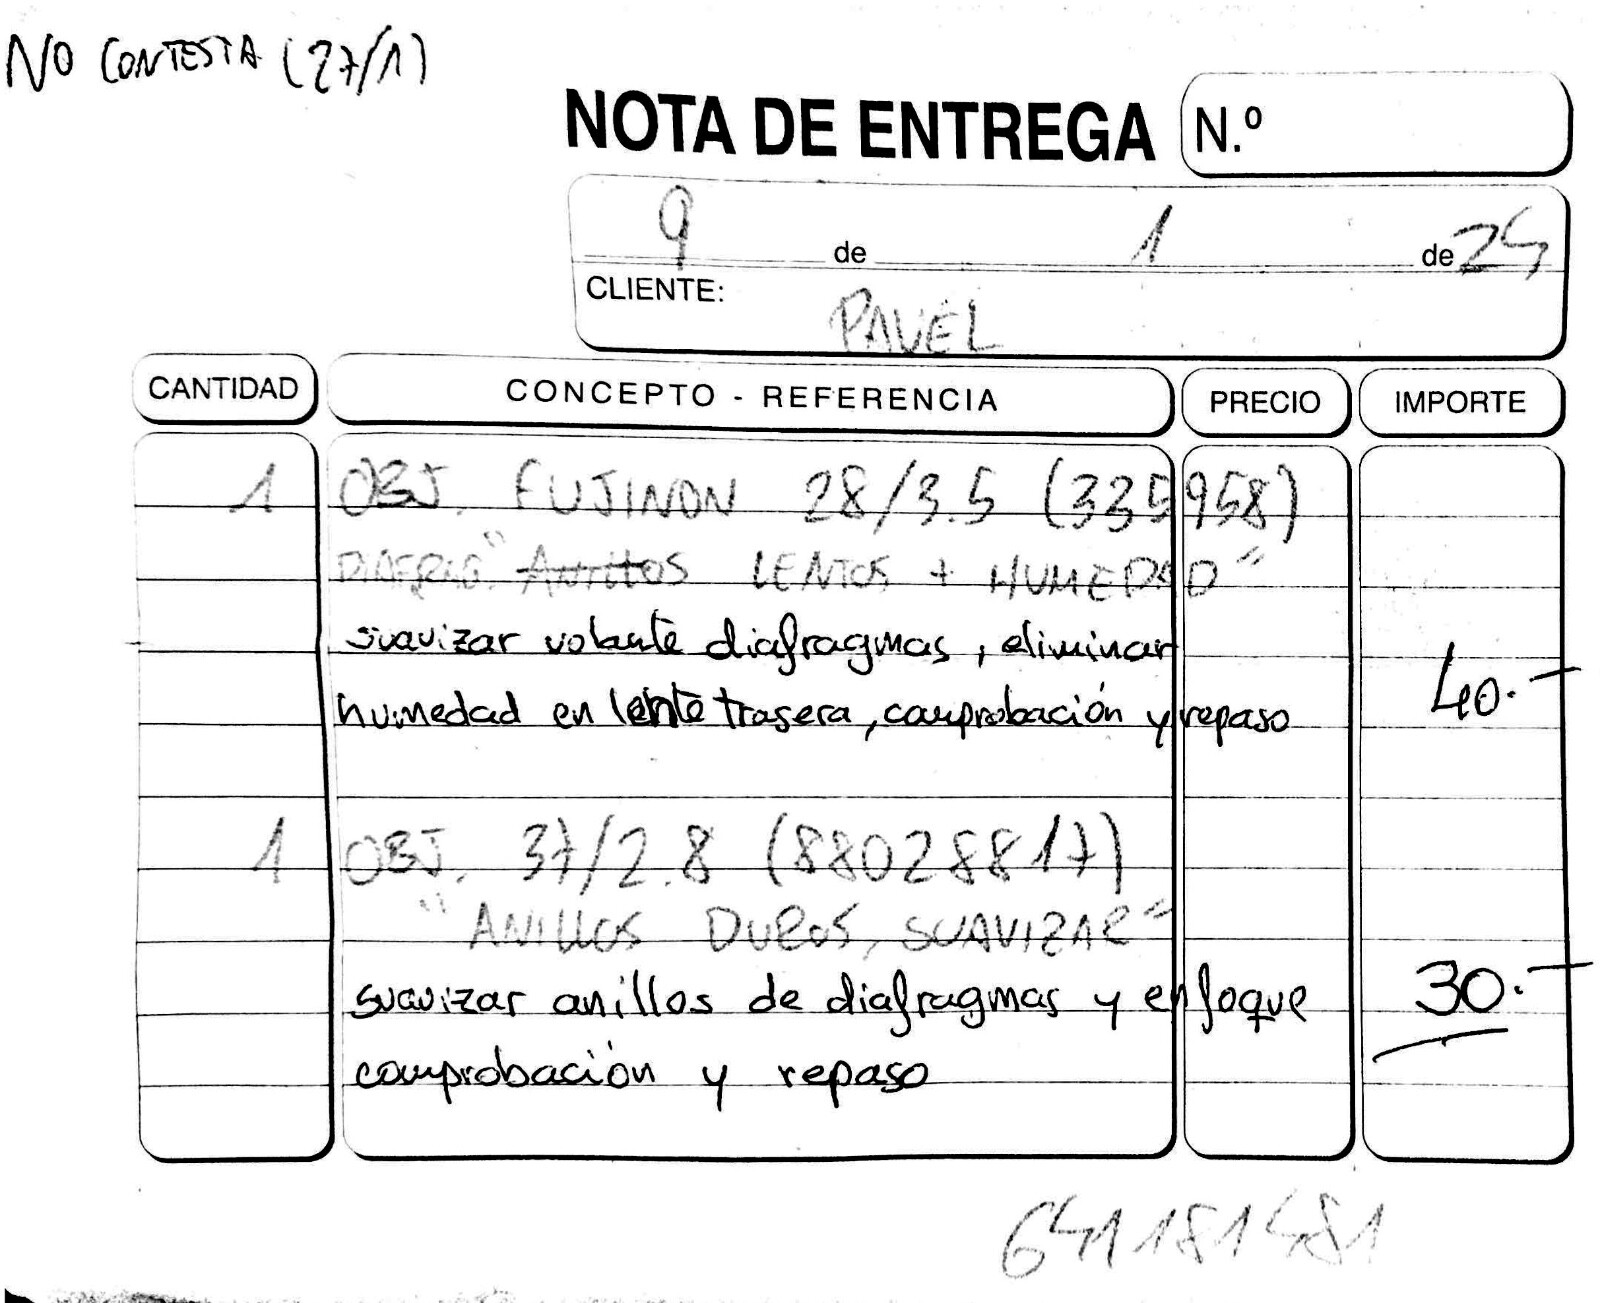 NO CONTESTA (27/1)
NOTA DE ENTREGA N.º
9 de 1 de 24
CLIENTE: PAVEL
CANTIDAD CONCEPTO - REFERENCIA PRECIO IMPORTE
1 OBJ. FUJINON 28/3.5 (335958)
DIAFRAG. "Anillos LENTOS + HUMEDAD"
suavizar volante diafragmas, eliminar
humedad en lente trasera, comprobación y repaso 40.-
1 OBJ. 37/2.8 (88028817)
"ANILLOS DUROS, SUAVIZAR"
suavizar anillos de diafragmas y enfoque 30.-
comprobación y repaso
641181481